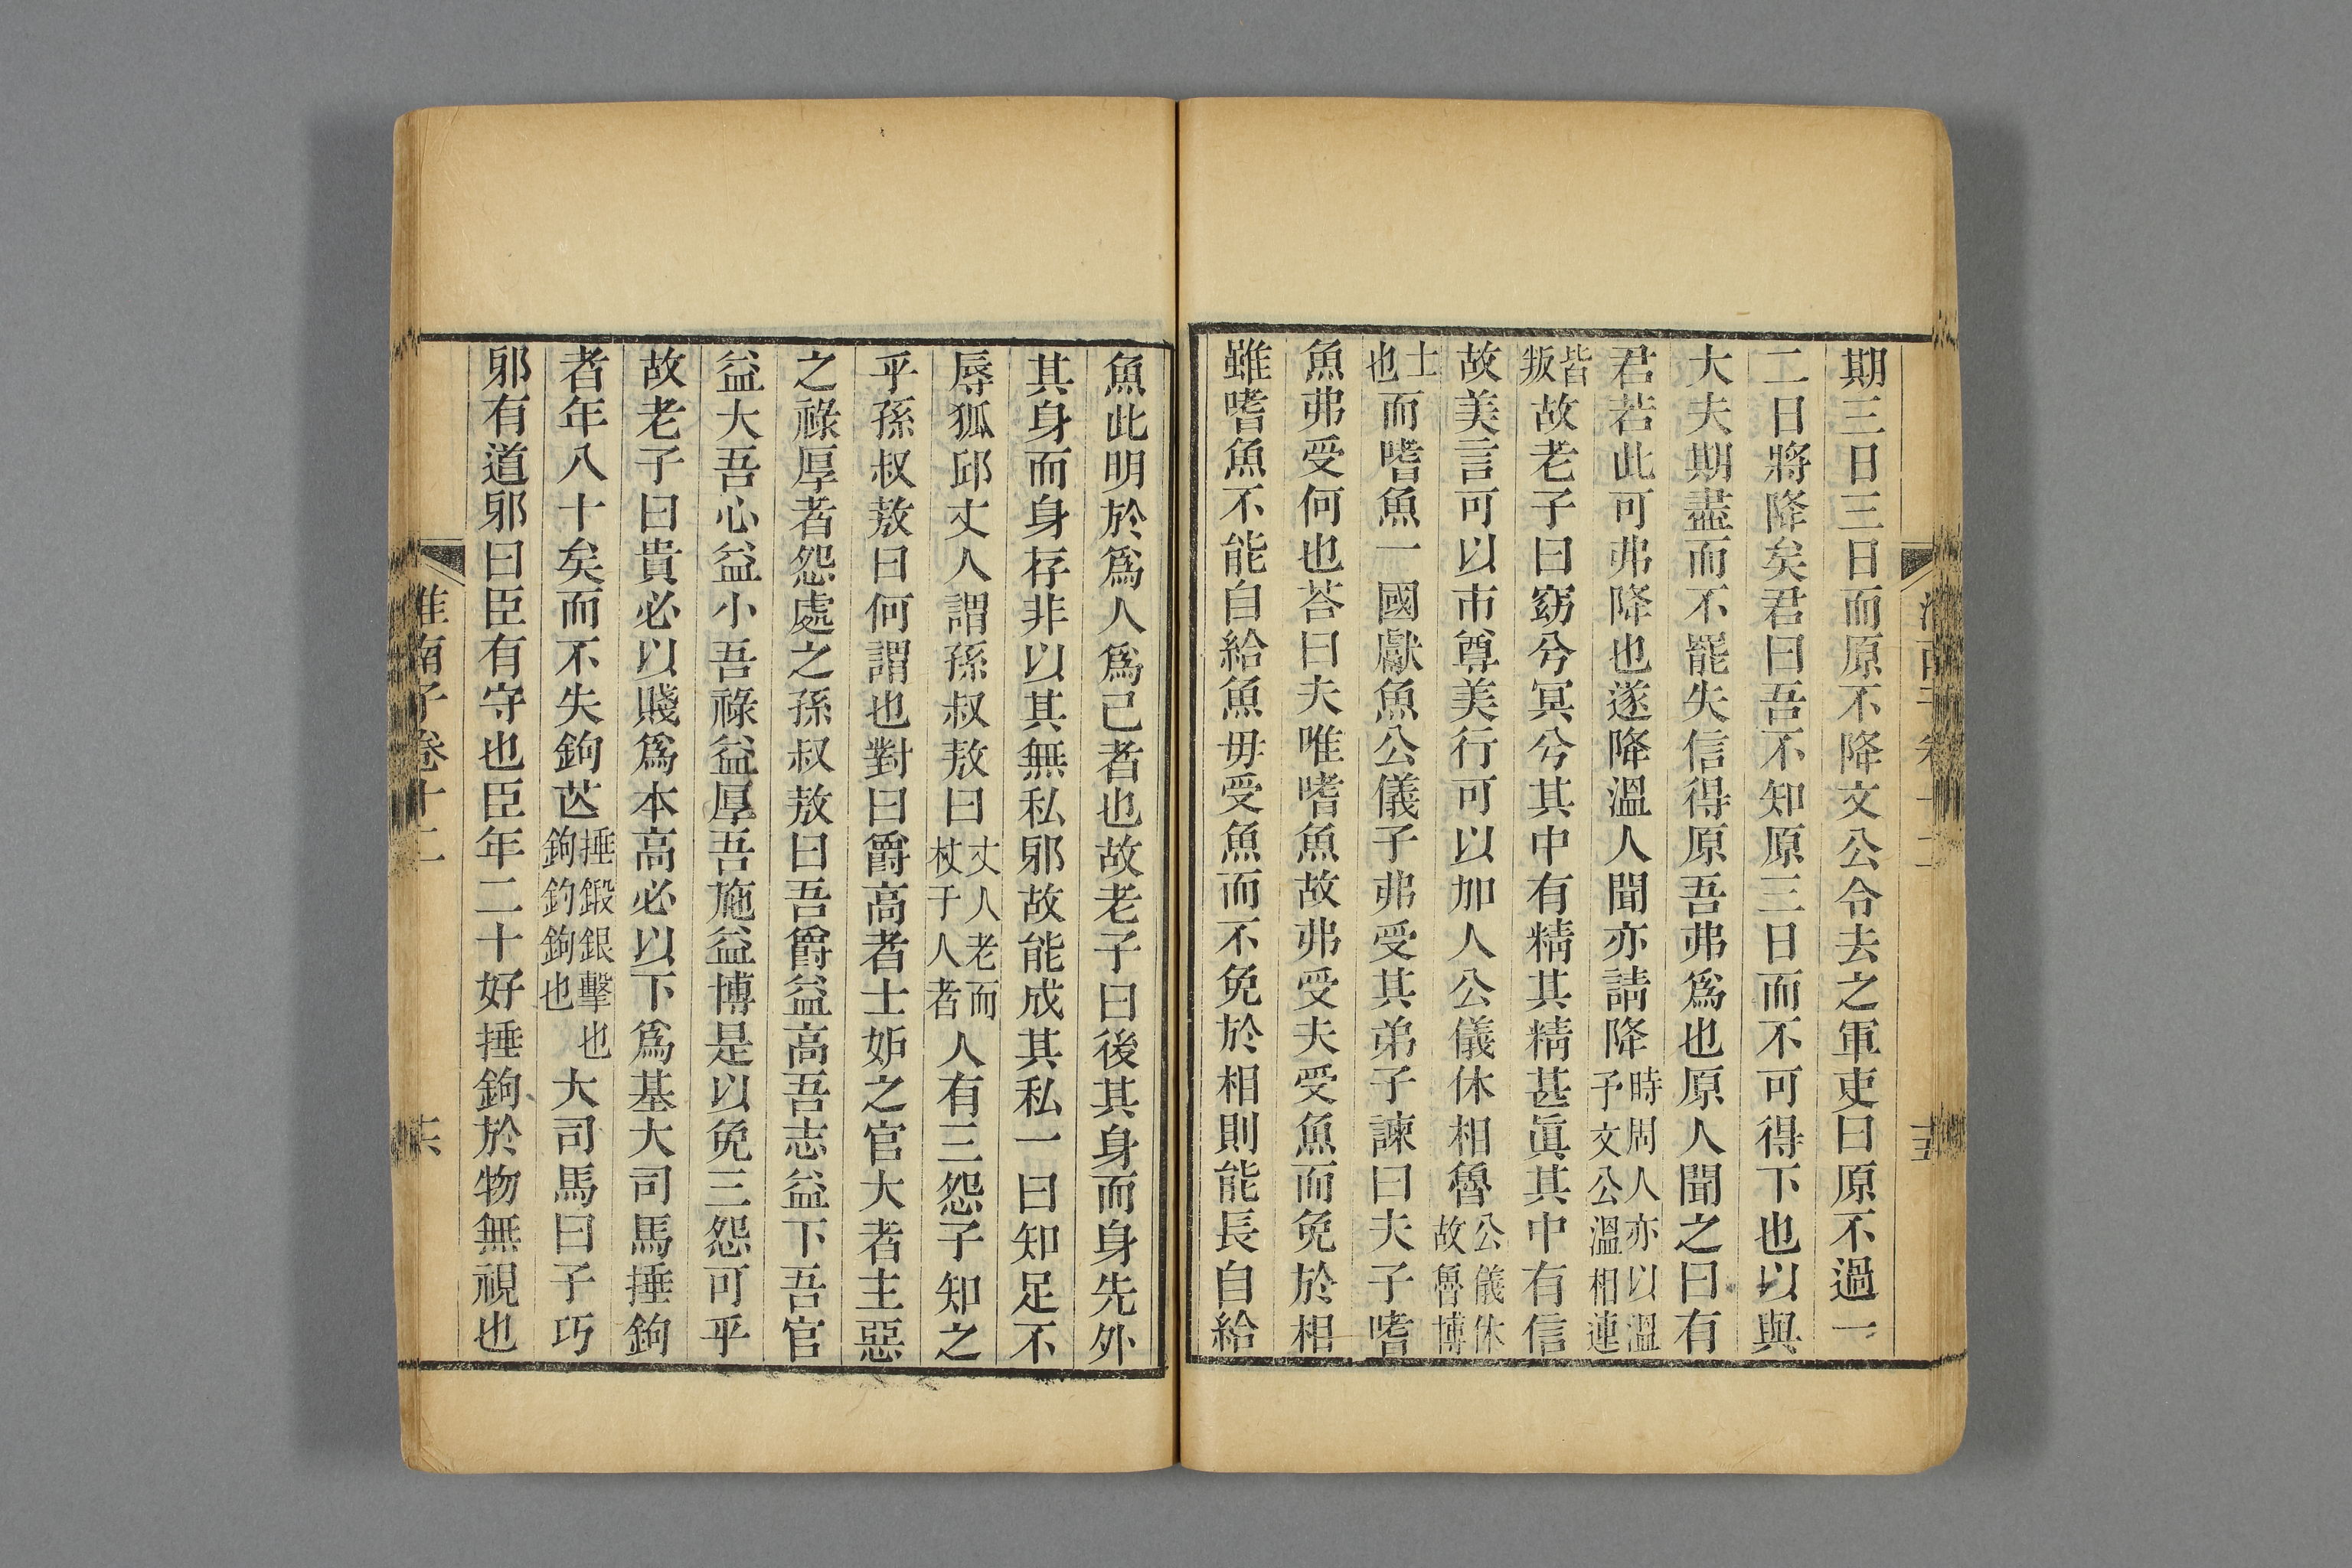 期三日三日而原不降文公令去之軍吏曰原不過一
二日將降矣君曰吾不知原三日而不可得下也以與
大夫期盡而不罷失信得原吾弗爲也原人聞之曰有
君若此可弗降也遂降溫人聞亦請降時周人亦以溫予文公溫相連
皆叛故老子曰窈兮冥兮其中有精其精甚眞其中有信
故美言可以市尊美行可以加人公儀休相魯公儀休故魯博
士也而嗜魚一國獻魚公儀子弗受其弟子諫曰夫子嗜
魚弗受何也荅曰夫唯嗜魚故弗受夫受魚而免於相
雖嗜魚不能自給魚毋受魚而不免於相則能長自給
魚此明於爲人爲己者也故老子曰後其身而身先外
其身而身存非以其無私邪故能成其私一曰知足不
辱狐邱丈人謂孫叔敖曰丈人老而杖于人者人有三怨子知之
乎孫叔敖曰何謂也對曰爵高者士妒之官大者主惡
之祿厚者怨處之孫叔敖曰吾爵益高吾志益下吾官
益大吾心益小吾祿益厚吾施益博是以免三怨可乎
故老子曰貴必以賤爲本高必以下爲基大司馬捶鉤
者年八十矣而不失鉤芒捶鍛銀擊也鉤釣鉤也大司馬曰子巧
邪有道邪曰臣有守也臣年二十好捶鉤於物無視也
淮南子卷十二
十六